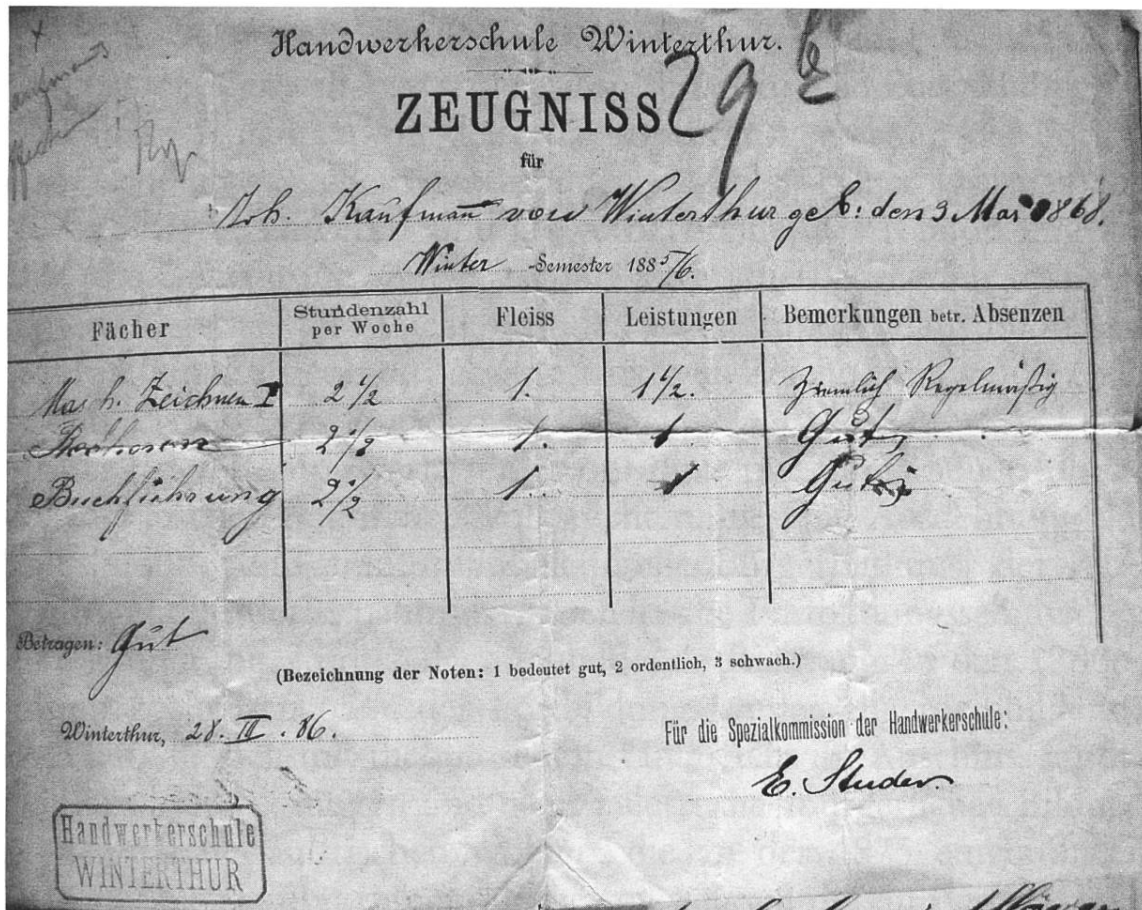 Handwerkerschule Winterthur.
ZEUGNISS
29
für
Joh. Kaufmann von Winterthur geb: den 3 Mai 1868.
Winter -Semester 1885/6.
Fächer Stundenzahl per Woche Fleiss Leistungen Bemerkungen betr. Absenzen
Masch. Zeichnen I 2 1/2 1. 1 1/2. Ziemlich Regelmäßig
Rechnen 2 1/2 1. 1 Gut
Buchführung 2 1/2 1. 1 Gut
Betragen: Gut
(Bezeichnung der Noten: 1 bedeutet gut, 2 ordentlich, 3 schwach.)
Winterthur, 28. III. 86.
Für die Spezialkommission der Handwerkerschule:
E. Studer.
Handwerkerschule
WINTERTHUR